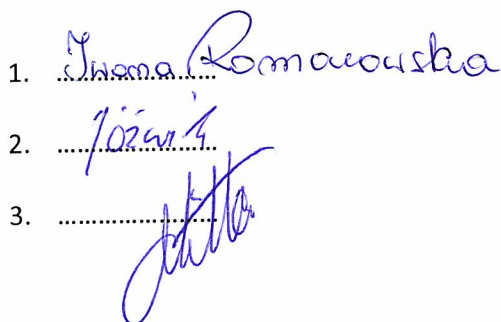 1. Iwona Romanowska
2. Jóźwik
3.